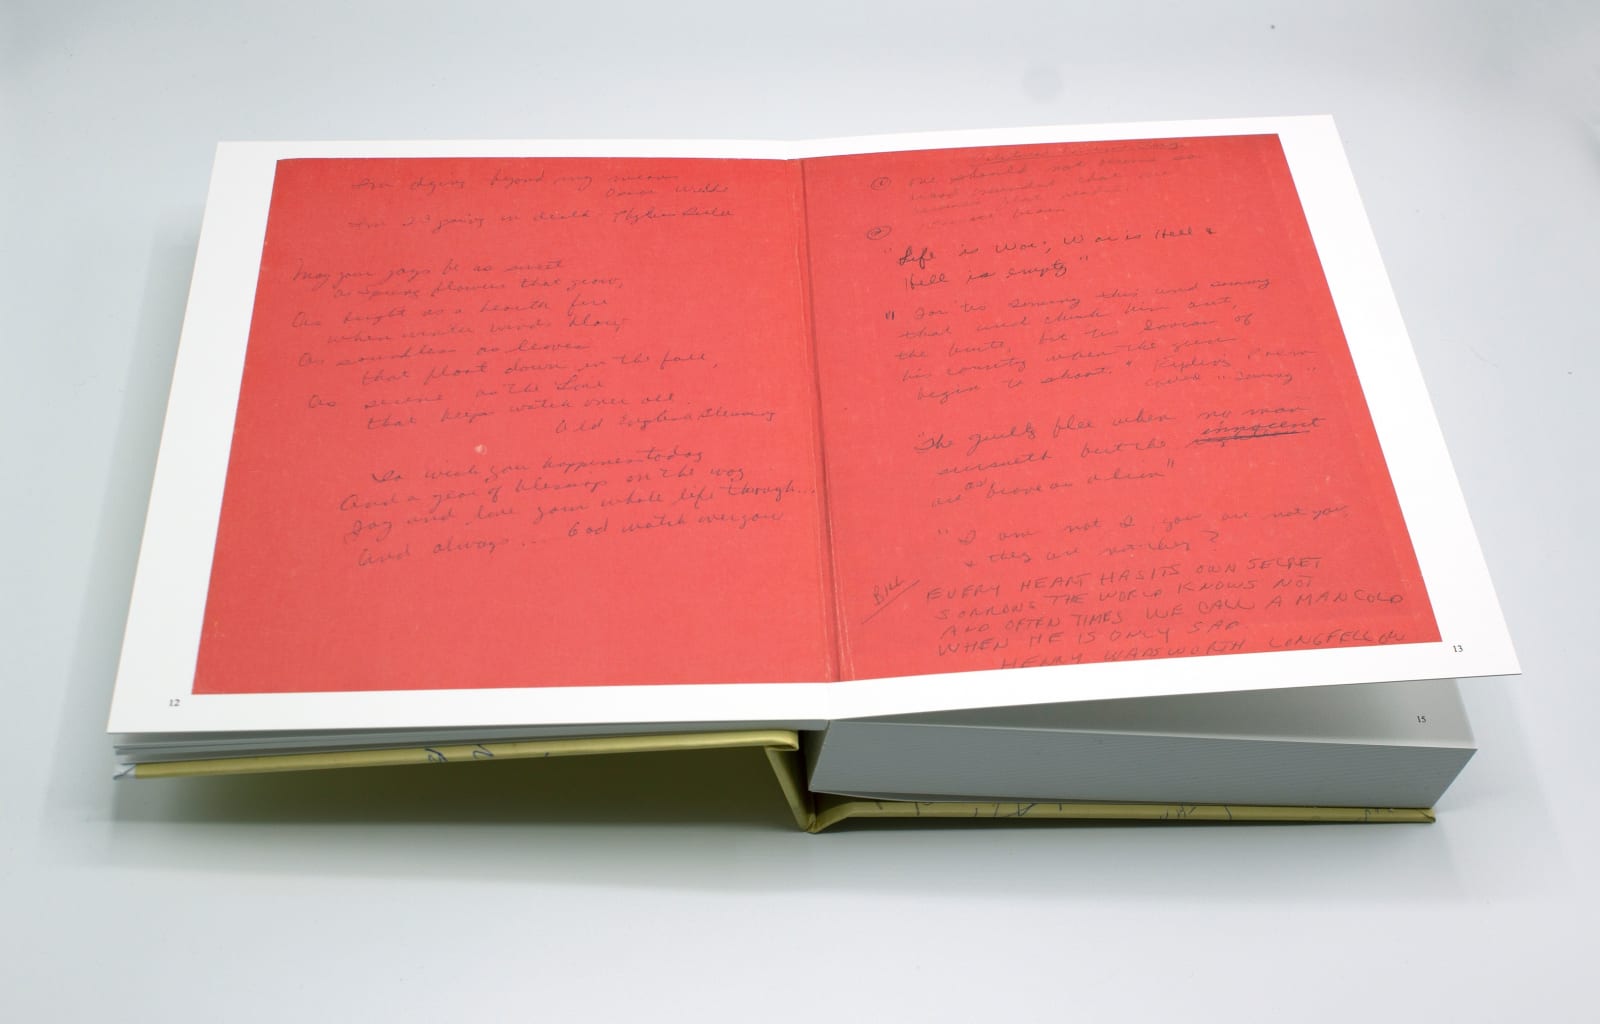 I'm dying beyond my means
Oscar Wilde
in death
May your joys be as sweet
as spring flowers that grow,
As bright as a hearth fire
when winter winds blow,
As soundless as leaves
that float down in the fall,
As serene as the love
that keeps watch over all.
Old English Blessing
So wish you happiness today
And a year of blessings on the way
Joy and love your whole life through...
And always... God watch over you
12
① One should not become so
② 
"Life is War, War is Hell &
Hell is empty"
"For 'tis Tommy this and Tommy
that and chuck him out,
the brute, but 'tis Savior of
his country when the guns
begin to shoot." Kipling Poem
called "Tommy"
"The guilty flee when no man
pursueth but the innocent
are as brave as a lion"
"I am not I, you are not you,
& they are not they?
BILL
EVERY HEART HAS ITS OWN SECRET
SORROWS THE WORLD KNOWS NOT
AND OFTEN TIMES WE CALL A MAN COLD
WHEN HE IS ONLY SAD.
HENRY WADSWORTH LONGFELLOW
13
15